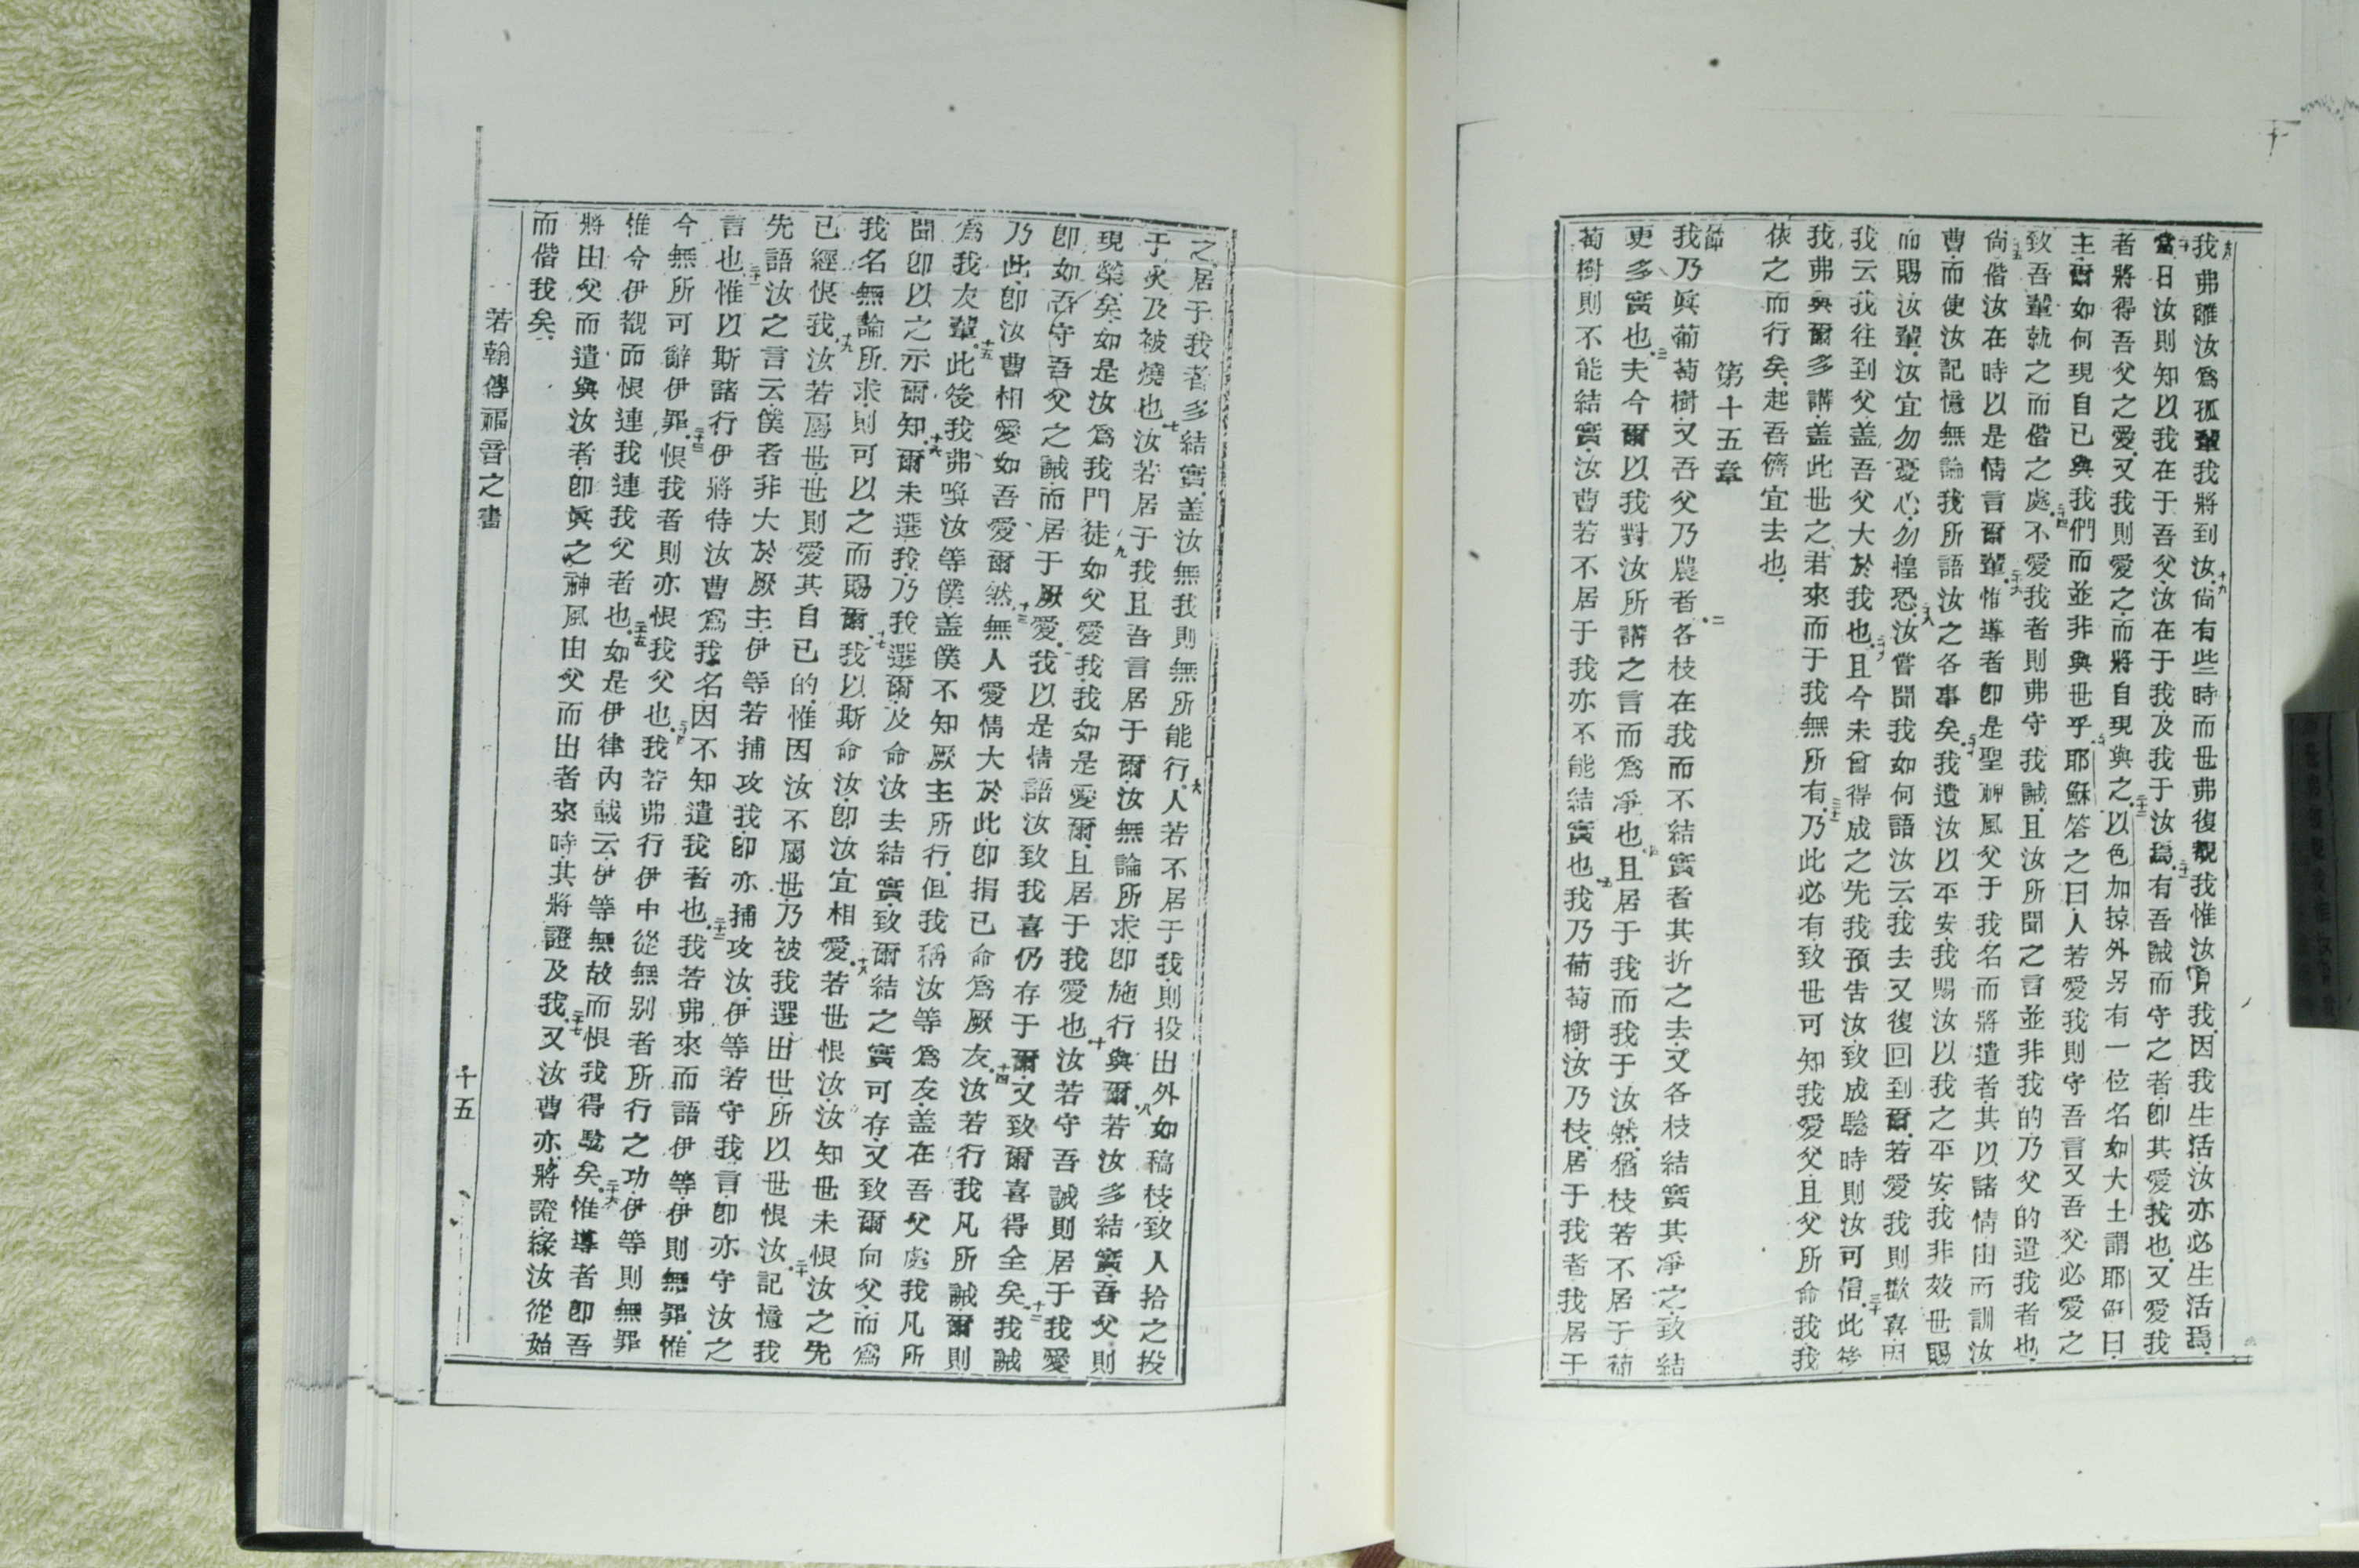 我弗離汝爲孤輩我將到汝尙有些時而世弗復覩我惟汝覩我因我生活汝亦必生活焉
當日汝則知以我在于吾父汝在于我及我于汝焉有吾誡而守之者卽其愛我也又愛我
者將得吾父之愛又我則愛之而將自現與之以色加掠外另有一位名如大士謂耶穌曰
主爾如何現自已與我們而並非與世乎耶穌答之曰人若愛我則守吾言又吾父必愛之
致吾輩就之而偕之處不愛我者則弗守我誡且汝所聞之言並非我的乃父的遣我者也
尙偕汝在時以是情言爾輩惟導者卽是聖神風父于我名而將遣者其以諸情由而訓汝
曹而使汝記憶無論我所語汝之各事矣我遺汝以平安我賜汝以我之平安我非效世賜
而賜汝輩汝宜勿憂心勿惶恐汝嘗聞我如何語汝云我去又復回到爾若愛我則歡喜因
我云我往到父盖吾父大於我也且今未曾得成之先我預告汝致成驗時則汝可信此後
我弗與爾多講盖此世之君來而于我無所有乃此必有致世可知我愛父且父所命我我
依之而行矣起吾儕宜去也
第十五章
我乃眞葡萄樹又吾父乃農者各枝在我而不結實者其折之去又各枝結實其凈之致結
更多實也夫今爾以我對汝所講之言而爲凈也且居于我而我于汝然猶枝若不居于葡
萄樹則不能結實汝曹若不居于我亦不能結實也我乃葡萄樹汝乃枝居于我者我居于
之居于我者多結實盖汝無我則無所能行人若不居于我則投出外如稿枝致人拾之投
于火及被燒也汝若居于我且吾言居于爾汝無論所求卽施行與爾若汝多結實吾父則
現榮矣如是汝爲我門徒如父愛我我如是愛爾且居于我愛也汝若守吾誡則居于我愛
卽如吾守吾父之誡而居于厥愛我以是情語汝致我喜仍存于爾又致爾喜得全矣我誡
乃此卽汝曹相愛如吾愛爾然無人愛情大於此卽捐已命爲厥友汝若行我凡所誡爾則
爲我友輩此後我弗喚汝等僕盖僕不知厥主所行但我稱汝等爲友盖在吾父處我凡所
聞卽以之示爾知爾未選我乃我選爾及命汝去結實致爾結之實可存又致爾向父而爲
我名無論所求則可以之而賜爾我以斯命汝卽汝宜相愛若世恨汝汝知世未恨汝之先
已經恨我汝若屬世世則愛其自已的惟因汝不屬世乃被我選出世所以世恨汝記憶我
先語汝之言云僕者非大於厥主伊等若捕攻我卽亦捕攻汝伊等若守我言卽亦守汝之
言也惟以斯諸行伊將待汝曹爲我名因不知遣我者也我若弗來而語伊等伊則無罪惟
今無所可辭伊罪恨我者則亦恨我父也我若弗行伊中從無别者所行之功伊等則無罪
惟今伊覩而恨連我連我父者也如是伊律內載云伊等無故而恨我得驗矣惟導者卽吾
將由父而遣與汝者卽眞之神風由父而出者來時其將證及我又汝曹亦將證緣汝從始
而偕我矣
若翰傳福音之書
十五